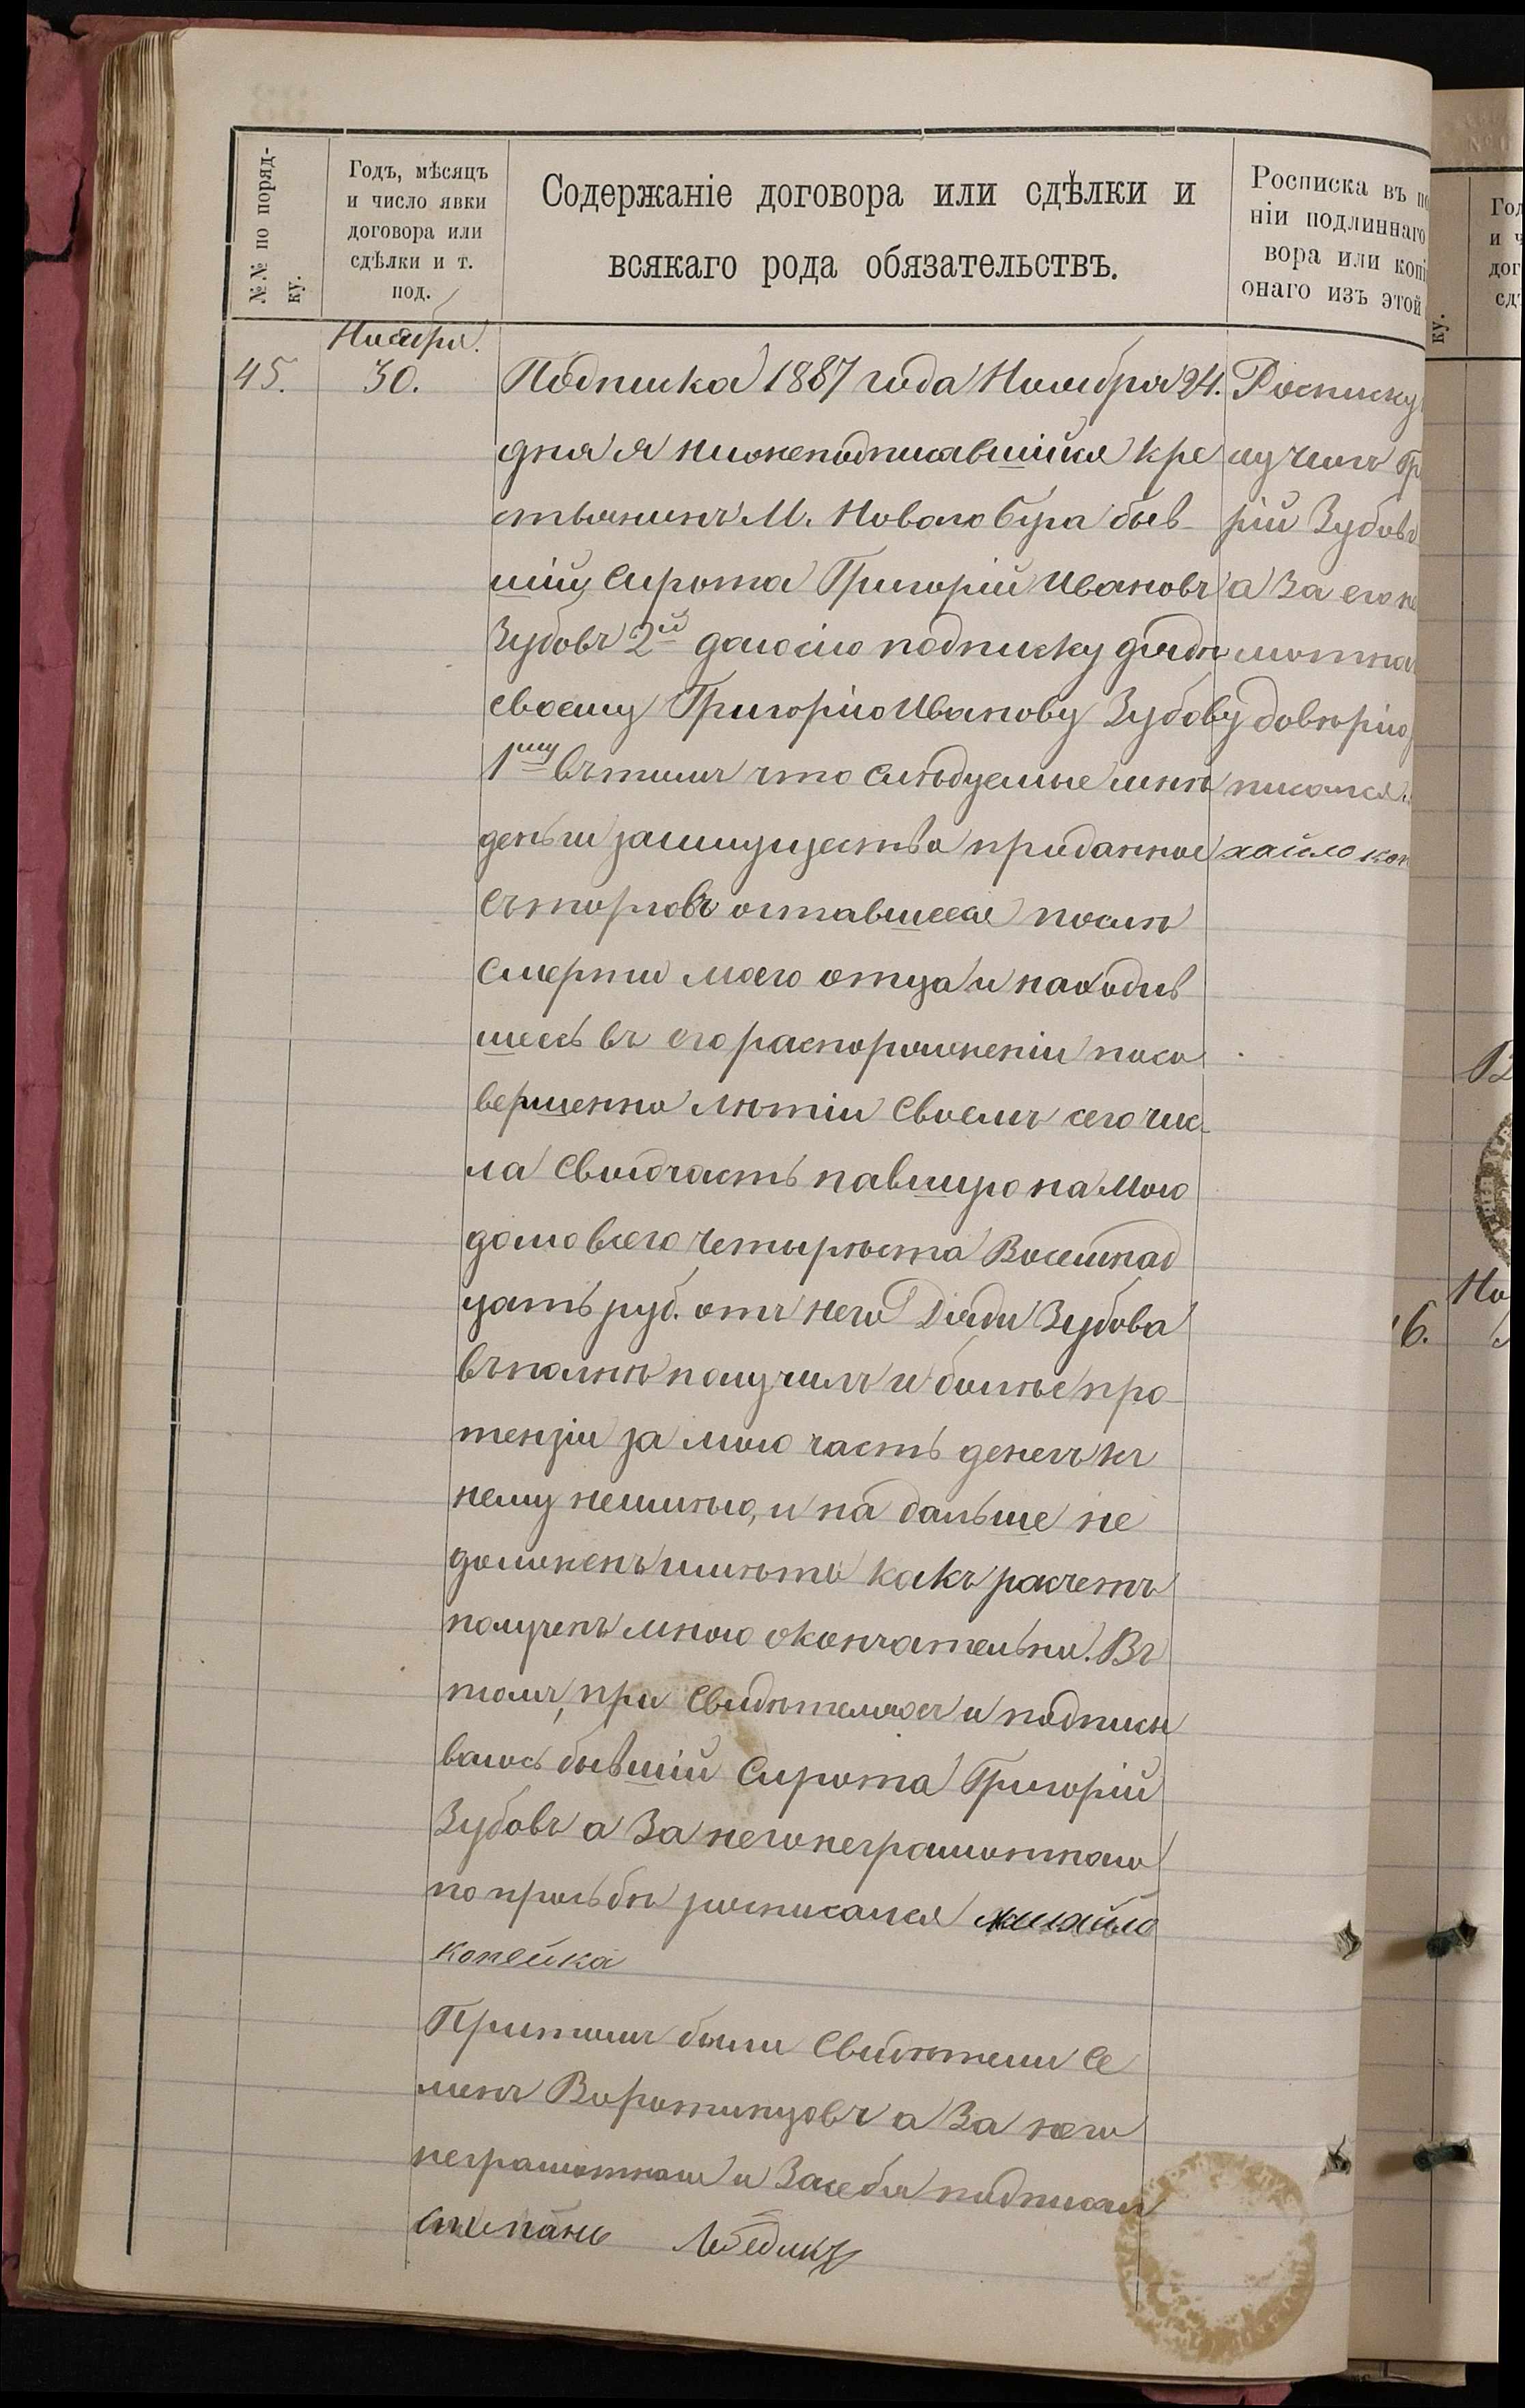 №№ по поряд-
ку.
Годъ, мѣсяцъ
и число явки
договора или
сдѣлки и т.
под.
Содержаніе договора или сдѣлки и
всякаго рода обязательствъ.
Росписка въ по
ніи подлиннаго
вора или копі
онаго изъ этой
Ноября.
45.
30.
Подписка 1887 года Ноября 24.
дня я нижеподписавшійся кре
стьянинъ М. Новаго Буга быв-
шій Сирота Григорій Ивановъ
Зубовъ 2й даю сію подписку дядѣ
своему Григорію Иванову Зубову
1му въ томъ что слѣдуемые мнѣ
деньги заимущество приданное
съторговъ оставшееся послѣ
смерти моего отца и находив
шееся въ его распоряженіи посо
вершенно лѣтіи своемъ сего чис-
ла свою часть павшую на мою
долю всего четыреста Восемнад
цать руб. отъ него Дяди Зубова
въполнѣ получилъ и болѣе пре-
тензіи за мою часть денегъ къ
нему неимѣю, и на дальше не
долженъ имѣть какъ расчетъ
полученъ мною окончательно. Въ
томъ, при свидѣтеляхъ и подписы
ваюсь бывшій Сирота Григорій
Зубовъ а За него неграмотнаго
по прозьбѣ росписался михайло
копейка
Притомъ были Свидѣтели Се
менъ Воротинцовъ а За него
неграмотнаго и Засебя подписал
степанъ Лебедикъ
Росписку
лучилъ Гр
рій Зубовъ
а За его не
мотна
довѣрію
писался
хайло коп
Год
и ч
дог
сд
ку.
Но
6.